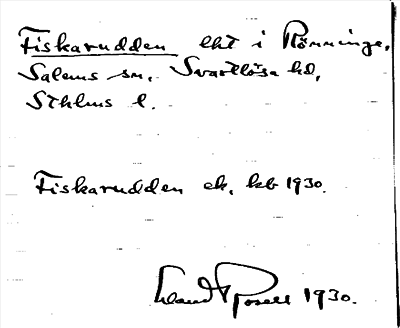 Fiskarudden lht i Rönninge,
Salems sn, Svartlösa hd,
Sthlms l.
Fiskarudden ek. kb 1930.
Rosell 1930.